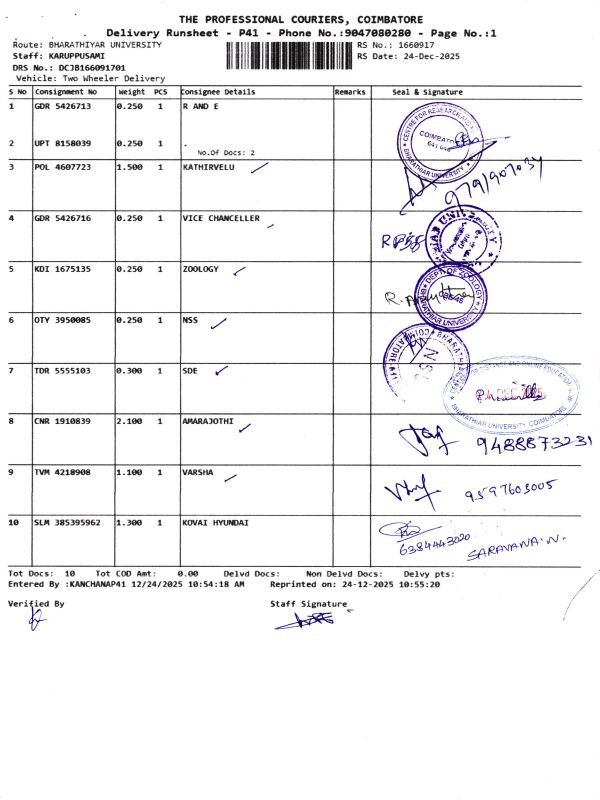 THE PROFESSIONAL COURIERS, COIMBATORE
Delivery Runsheet - P41 - Phone No.:9047080280 - Page No.:1
Route: BHARATHIYAR UNIVERSITY RS No.: 1660917
Staff: KARUPPUSAMI RS Date: 24-Dec-2025
DRS No.: DCJB166091701
Vehicle: Two Wheeler Delivery
S No Consignment No Weight PCS Consignee Details Remarks Seal & Signature
1 GDR 5426713 0.250 1 R AND E
CENTRE FOR RESEARCH AND
COIMBATORE
641 046
BHARATHIAR UNIVERSITY
2 UPT 8158039 0.250 1 .
No.Of Docs: 2
3 POL 4607723 1.500 1 KATHIRVELU
9791907034
4 GDR 5426716 0.250 1 VICE CHANCELLER
5 KDI 1675135 0.250 1 ZOOLOGY
DEPT. OF ZOOLOGY
BHARATHIAR UNIVERSITY
6 OTY 3950085 0.250 1 NSS
7 TDR 5555103 0.300 1 SDE
DISTANCE AND ONLINE EDUCATION
BHARATHIAR UNIVERSITY, COIMBATORE
8 CNR 1910839 2.100 1 AMARAJOTHI
9488873231
9 TVM 4218908 1.100 1 VARSHA
9597603005
10 SLM 385395962 1.300 1 KOVAI HYUNDAI
6384443020 SARAVANA.N.
Tot Docs: 10 Tot COD Amt: 0.00 Delvd Docs: Non Delvd Docs: Delvy pts:
Entered By :KANCHANAP41 12/24/2025 10:54:18 AM Reprinted on: 24-12-2025 10:55:20
Verified By Staff Signature